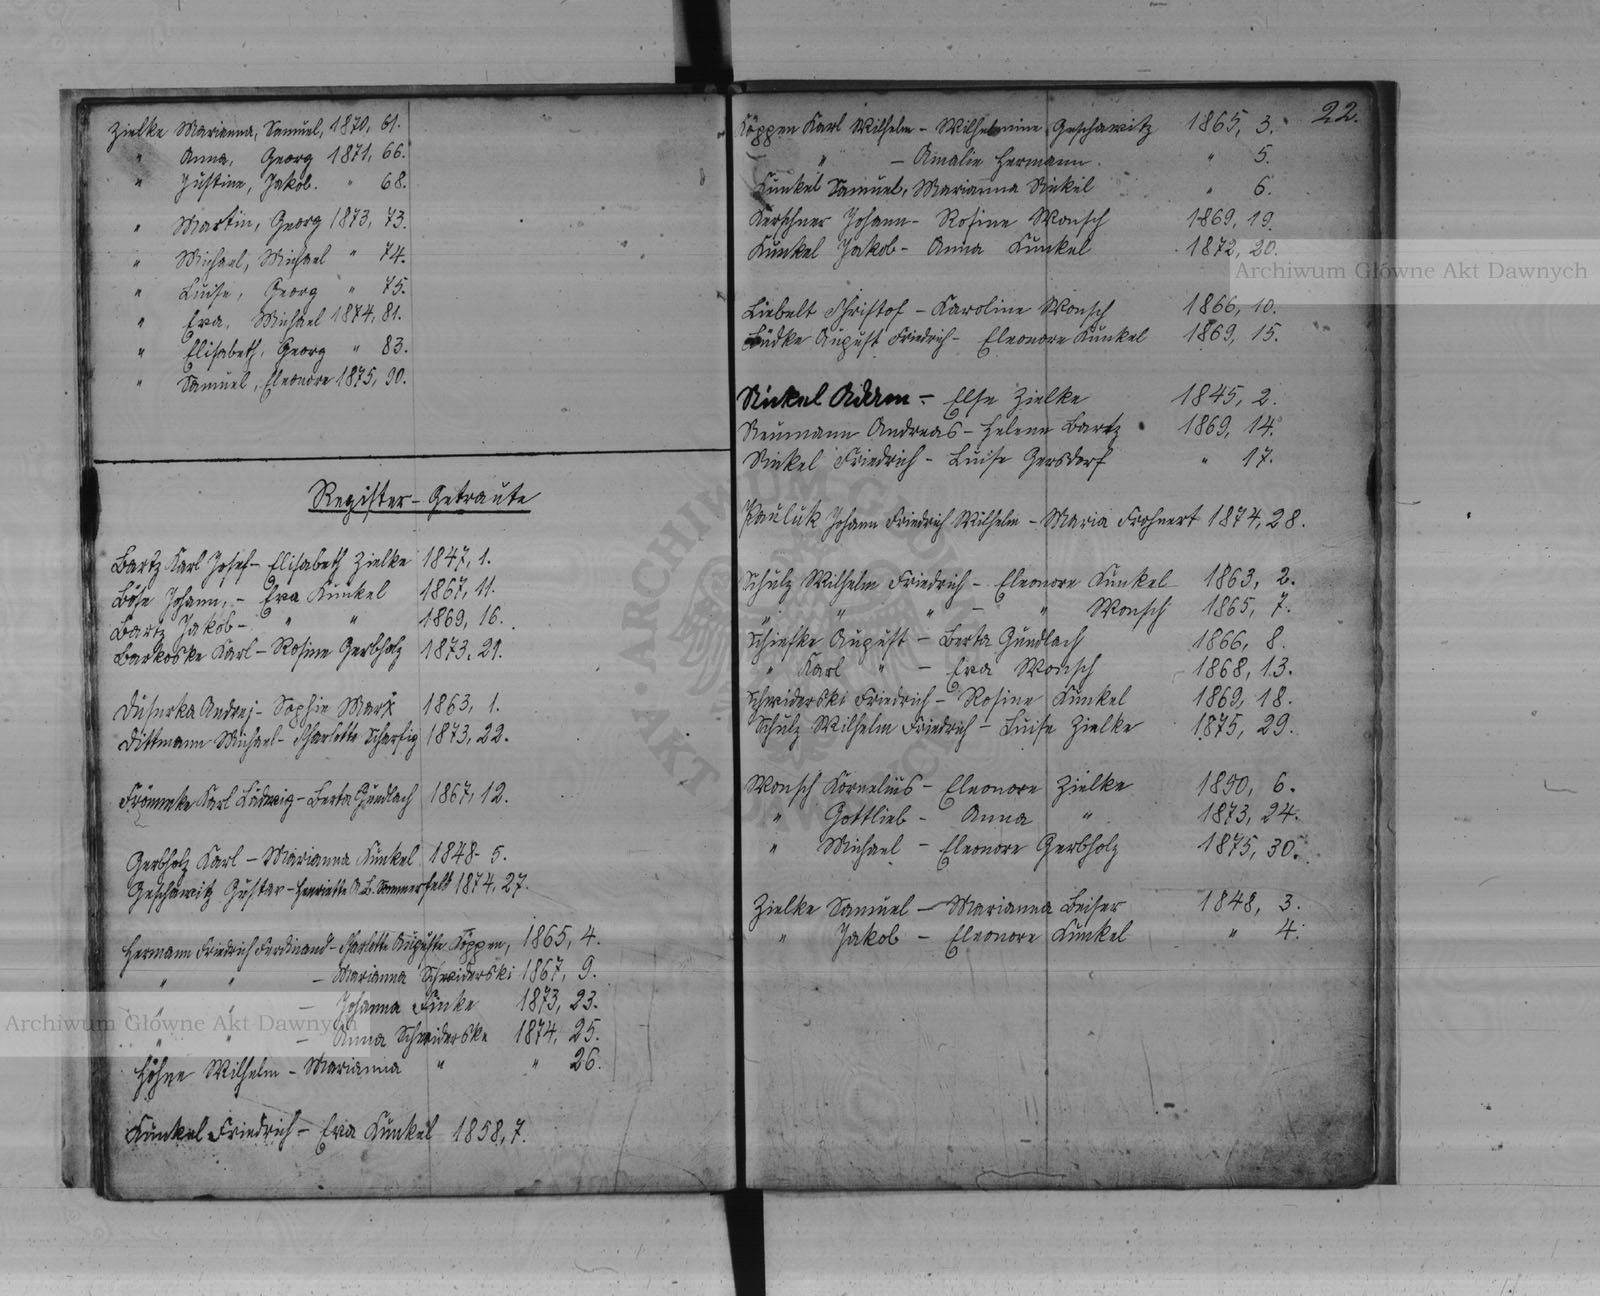 Zielke Marianna, Samuel, 1870, 61.
" Anna, Georg 1871, 66.
" Justine, Jakob. " 68.
" Martin, Georg 1873, 73.
" Michael, Michael " 74.
" Luise, Georg " 75.
" Eva, Michael 1874, 81.
" Elisabeth, Georg " 83.
" Samuel, Eleonore 1875, 90.
Register - Getraute
Bartz Karl Josef - Elisabeth Zielke 1847, 1.
Böse Johann, - Eva Kunkel 1867, 11.
Bartz Jakob - " " 1869, 16.
Barkoske Karl - Rosine Gerbholz 1873, 21.
Dusurka Andrej - Sophie Marx 1863, 1.
Dittmann Michael - Charlotte Scharfig 1873, 22.
Frömmke Karl Ludwig - Berta Gundlach 1867, 12.
Gerbholz Karl - Marianna Kunkel 1848 - 5.
Geschawitz Gustav - Henriette A. B. Sommerfeld 1874, 27.
Hermann Friedrich Ferdinand - Charlotte Auguste Köppen, 1865, 4.
" " - Marianna Schwiderski 1867, 9.
" " - Johanna Finke 1873, 23.
" " - Anna Schwiderske 1874, 25.
Höhne Wilhelm - Marianna " " 26.
Kunkel Friedrich - Eva Kunkel 1858, 7.
22.
Köppen Karl Wilhelm - Wilhelmine Geschawitz 1865, 3.
" - Amalie Hermann. " 5.
Kunkel Samuel, Marianna Nickel " 6.
Kerschner Johann - Rosine Wonsch 1869, 19.
Kunkel Jakob - Anna Kunkel 1872, 20.
Liebelt Christof - Karoline Wonsch 1866, 10.
Lüdke August Friedrich - Eleonore Kunkel 1869, 15.
Nickel Adam - Else Zielke 1845, 2.
Neumann Andreas - Helene Bartz 1869, 14.
Nickel Friedrich - Luise Gersdorf " 17.
Pauluk Johann Friedrich Wilhelm - Maria Frohnert 1874, 28.
Schulz Wilhelm Friedrich - Eleonore Kunkel 1863, 2.
" " " - " Wonsch 1865, 7.
Schiefke August - Berta Gundlach 1866, 8.
" Karl " - Eva Wonsch 1868, 13.
Schwiderski Friedrich - Rosine Kunkel 1869, 18.
Schulz Wilhelm Friedrich - Luise Zielke 1875, 29.
Wonsch Kornelius - Eleonore Zielke 1850, 6.
" Gottlieb - Anna " 1873, 24.
" Michael - Eleonore Gerbholz 1875, 30.
Zielke Samuel - Marianna Beiser 1848, 3.
" Jakob - Eleonore Kunkel " 4.
Archiwum Główne Akt Dawnych
Archiwum Główne Akt Dawnych